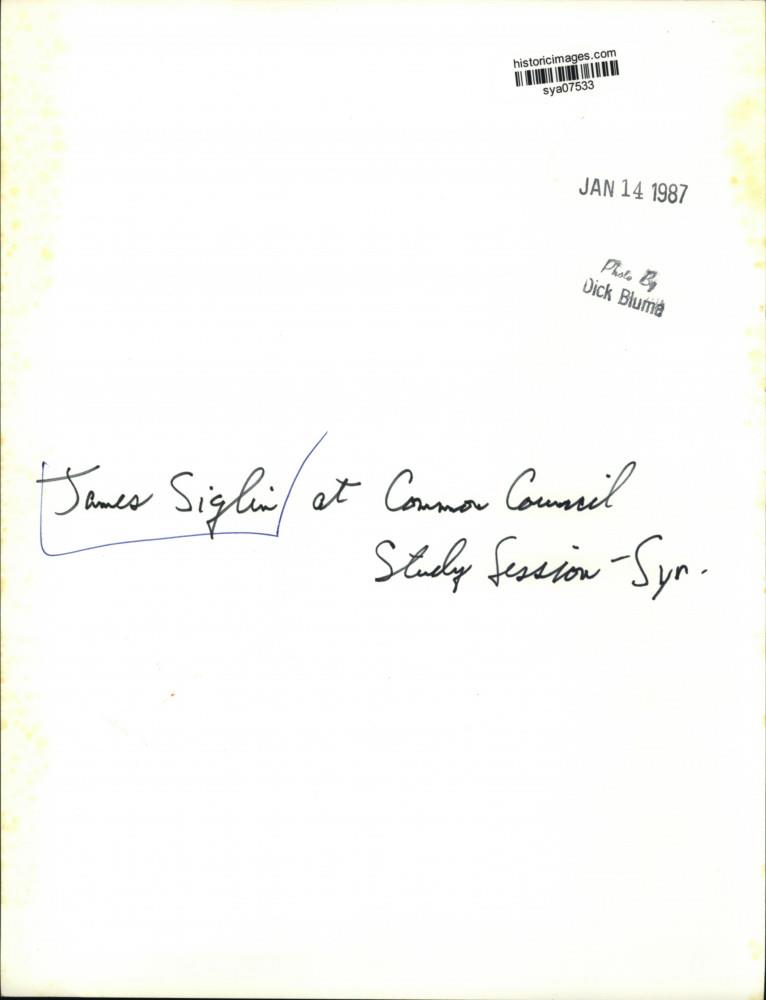 historicimages.com
sya07533
JAN 14 1987
Photo By
Dick Blume
James Siglin at Common Council
Study Session - Syr.